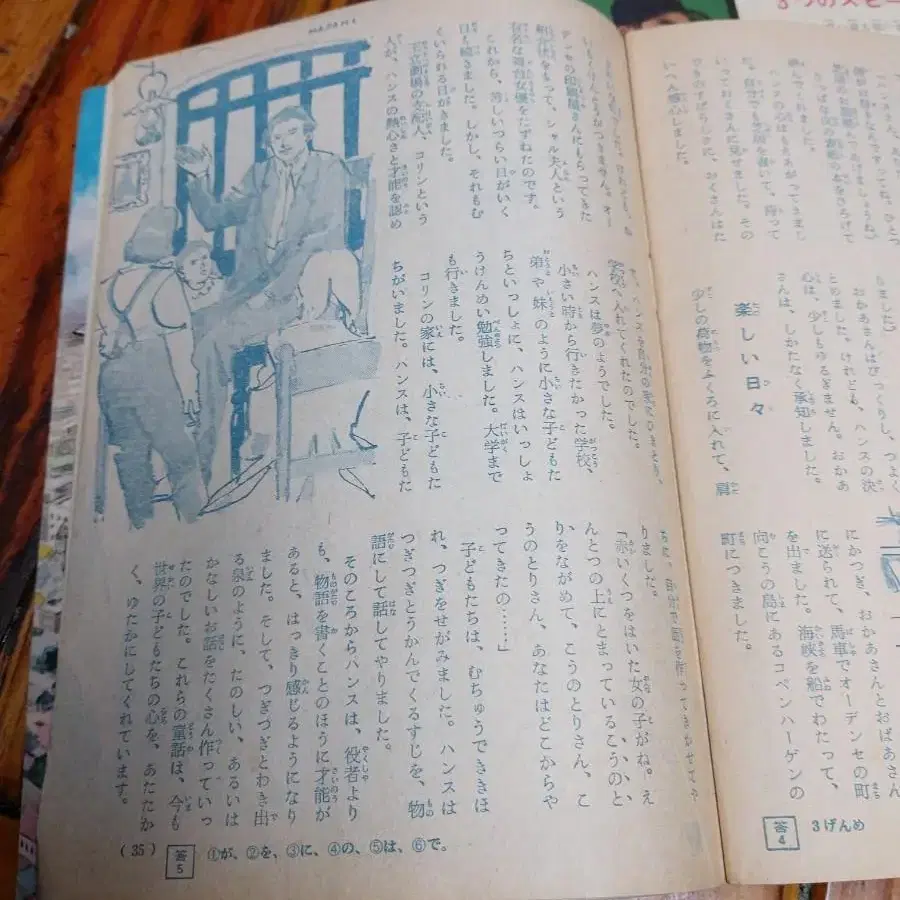 3つのスピー
ハンスさん、
ハンスの心はもえあがってきまし
た。自分でも芝居を書いて、持って
いっておくさんに見せました。その
すばらしさに、おくさんはた
いへん感心しました。
しました」
おかあさんはびっくりし、つよく
とめました。けれども、ハンスの決
心は、少しもゆるぎません。おかあ
さんは、しかたなく承知しました。
楽しい日々
少しの荷物をふくろに入れて、肩
にかつぎ、おかあさんとおばあさん
に送られて、馬車でオーデンセの町
を出ました。海峡を船でわたって、
向こうの島にあるコペンハーゲンの
町につきました。
答4 3げんめ
つきません。オー
デンセの印刷屋さんにもらってきた
紹介状をもって、シャル夫人という
有名な舞台女優をたずねたのです。
これから、苦しいつらい日がいく
日も続きました。しかし、それもむ
くいられる日がきました。
王立劇場の支配人、コリンという
人が、ハンスの熱心さと才能を認め
て、ハンスを
学校へ入れてくれたのでした。
ハンスは夢のようでした。
小さい時から行きたかった学校、
弟や妹のように小さな子どもた
ちといっしょに、ハンスはいっしょ
うけんめい勉強しました。大学まで
も行きました。
コリンの家には、小さな子どもた
ちがいました。ハンスは、子どもた
りました。
「赤いくつをはいた女の子がね。え
んとつの上にとまっているこうのと
りをながめて、こうのとりさん、こ
うのとりさん、あなたはどこからや
ってきたの……」
子どもたちは、むちゅうできほ
れ、つぎをせがみました。ハンスは
つぎつぎとうかんでくるすじを、物
語にして話してやりました。
そのころからハンスは、役者より
も、物語を書くことのほうに才能が
あると、はっきり感じるようになり
ました。そして、つぎつぎとわき出
る泉のように、たのしい、あるいは
かなしいお話をたくさん作っていっ
たのでした。これらの童話は、今も
世界の子どもたちの心を、あたたか
く、ゆたかにしてくれています。
(35) 答5 ①が、②を、③に、④の、⑤は、⑥で。